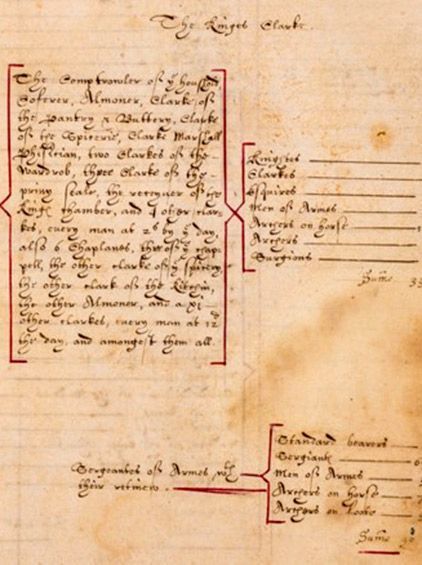 The Kinges Clarke.
The Comptrowler of yͤ houshold,
Coferer, Almoner, Clarke of
the Pantry & Buttery, Clarke
of the Spicerie, Clarke Marshall
Phisitian, two Clarkes of the
Wardrob, three Clarke of the
priuy seale, the receyuer of the
Kings Chamber, and 4 other clar-
kes, euery man at 2ˢ by yͤ day,
also 6 Chaplanes, three of yͤ chap-
pell, the other clarke of yͤ spicery,
the other clark of the Kitchin,
the other Almoner, and a xi
other clarkes, euery man at 12ᵈ
the day, and amongest them all.
Knightes
Clarkes
Esquires
Men of Armes
Archers on horse
Archers
Surgions
Sume 33
Sergeantes of Armes wᵗʰ
their retinew
Standard bearers
Sergiants 6
Men of Armes
Archers on horse
Archers on foote
Sume